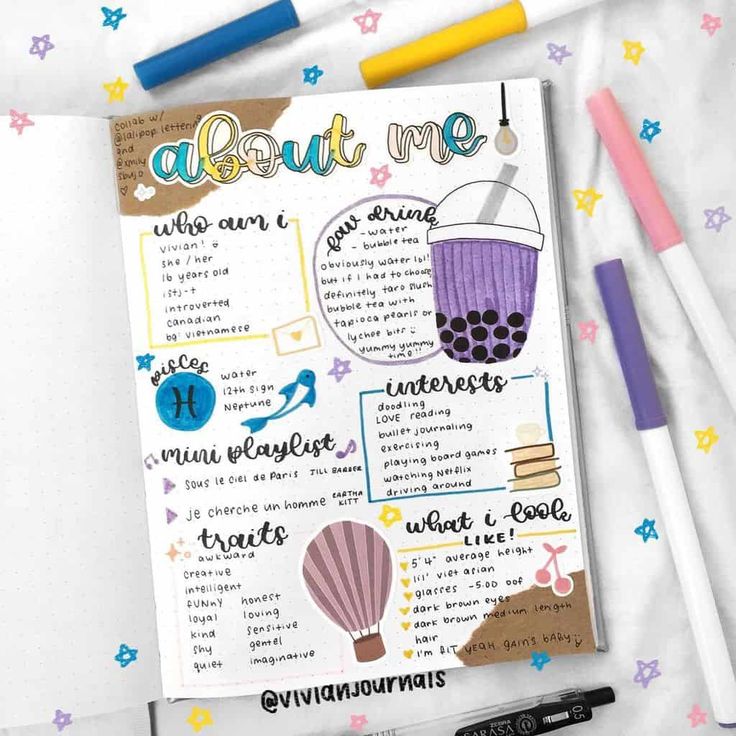 collab w/
@lalipop.lettering
and
@xmily
sbujo
about me
who am i
vivian!
she / her
16 years old
istj-t
introverted
canadian
bg: vietnamese
fav drink
- water
- bubble tea
obviously water lol!
but if i had to choose
definitely taro slush
bubble tea with
tapioca pearls or
lychee bits
yummy yummy
time!!
pisces
water
12th sign
Neptune
interests
doodling
LOVE reading
bullet journaling
exercising
playing board games
watching Netflix
driving around
mini playlist
sous le ciel de Paris JILL BARBER
je cherche un homme EARTHA
KITT
traits
awkward
creative
intelligent
funny honest
loyal loving
kind sensitive
shy gentel
quiet imaginative
what i look
LIKE!
5'4" average height
lil' viet asian
glasses -5.00 oof
dark brown eyes
dark brown medium length
hair
i'm fit yeah gains baby
@vivianjournals
ZEBRA
SARASA
0.5